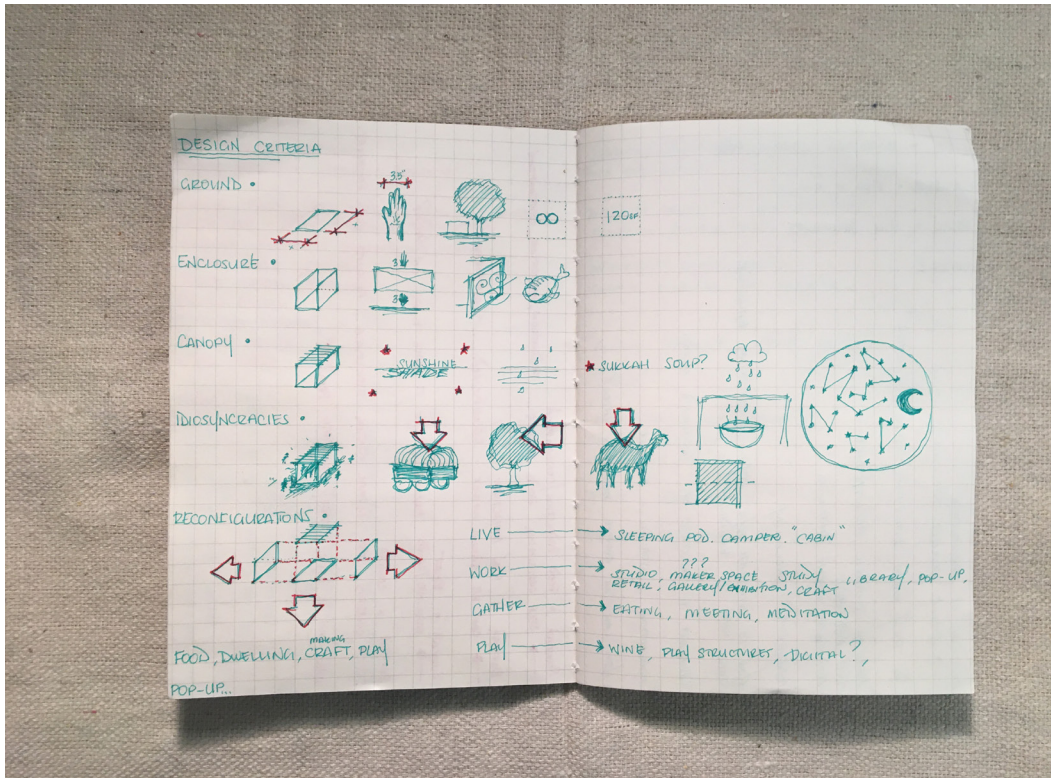 DESIGN CRITERIA
GROUND •
3.5"
∞
120SF
ENCLOSURE •
3
3
CANOPY •
SUNSHINE
SHADE
SUKKAH SOUP?
IDIOSYNCRACIES •
RECONFIGURATIONS •
LIVE
SLEEPING POD. DAMPER. "CABIN"
???
WORK
STUDIO, MAKER SPACE STUDY LIBRARY, POP-UP,
RETAIL, GALLERY/EXHIBITION, CRAFT
GATHER
EATING, MEETING, MEDITATION
MAKING
FOOD, DWELLING, CRAFT, PLAY
PLAY
WINE, PLAY STRUCTURES, DIGITAL?,
POP-UP...